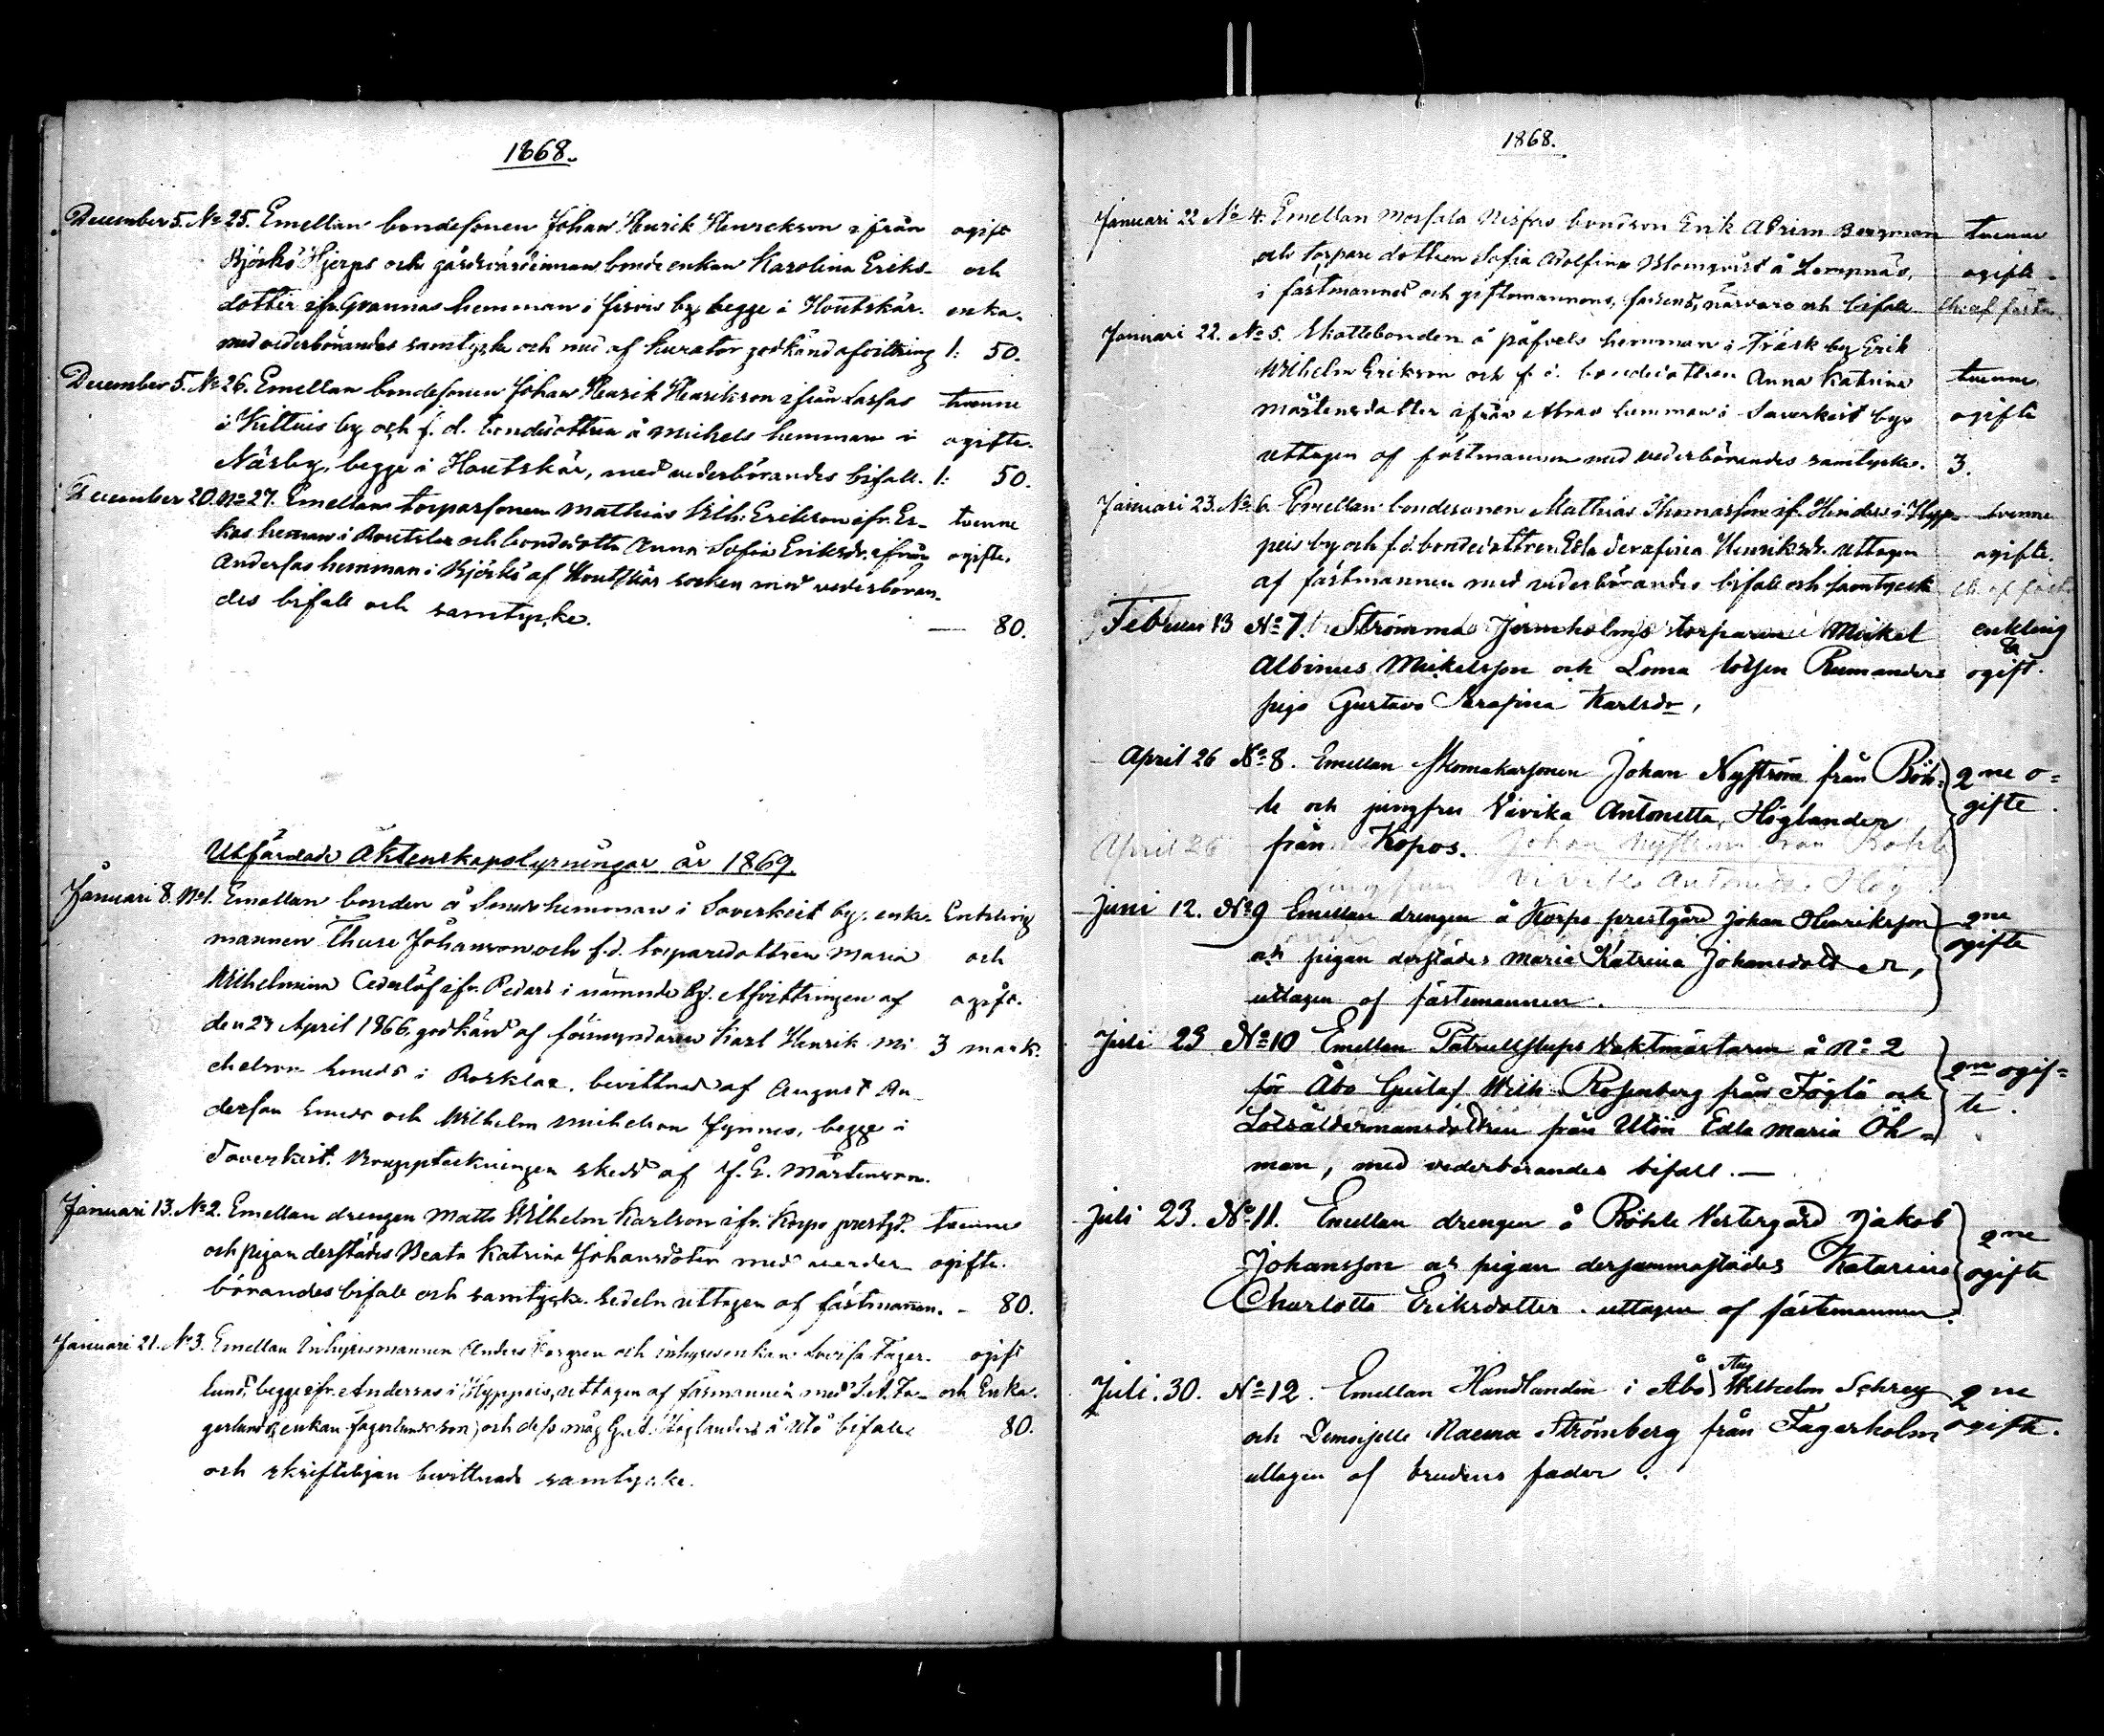 1868.
December 5. No 25. Emellan bondesonen Johan Henrik Henrekson ifrån ogift
Björkö Hjerps och gårdvärdinnan bondeenkan Karolina Eriks- och
dotter ifr. Grannas hemman i by begge i Houtskär. enka.
med vederbörandes samtycke och med af Kurator godkänd afvittring 1: 50.
December 5. No 26. Emellan bondesonen Johan Henrik Henrikson ifrån Larsas tvenne
i Kittuis by och f. d. bondedottren å Michels hemman i ogifte.
Näsby, begge i Houtskär, med vederbörandes bifall. 1: 50.
December 20. No 27. Emellan torparsonen Mathias Vilh: Erikson ifr. Er- tvenne
kas hemman i Roslax och bondedottr Anna Sofia Eriksdr. ifrån ogifte.
Andersas hemman i Björkö af Houtskär socken med vederböran-
des bifall och samtycke. — 80.
Utfärdade Äktenskapslysningar år 1869.
Januari 8. No 1. Emellan bonden å hemman i Saverkeit by. enke- Enkling
mannen Thure Johanson och f.d. torparedottren Maria och
Wilhelmina Cederlöf ifr. Pedars i nämnde by. Afvittringen af ogift.
den 27 April 1866, godkänd af förmyndaren Karl Henrik Mi 3 mark.
chelson Smeds i Rosklax, bevittnad af August An-
derson och Wilhelm Michelson begge i
Saverkeit. Bouppteckningen skedd af J. E. Mårtenson.
Januari 13. No 2. Emellan drengen Matts Wilhelm Karlson ifr. Korpo prestgd. tvenne
och pigan derstädes Beata Katrina Johansdoter med veder- ogifte.
börandes bifall och samtycke. Sedeln uttagen af fästmannen. - 80.
Januari 21. No 3. Emellan Inhysesmannen Anders och inhysesenkan Lovisa Fager- ogift
lund, begge ifr. Andersas i Hyppeis, uttagen af fäsmannen med Fa- och Enka.
gerlund (enkan Fagerlunds son) och dess måg Höglanders å Utö bifall 80.
och skriftligen bevittnade samtycke.
1868.
Januari 22 No 4. Emellan Morsala Nisfas bondson Erik Abrim Bergman tvenne
och torpare dottren Sofia Adolfina Blomqvist å Lempnäs, ogifte.
i fästmannes och giftomannens, faderns, närvaro och bifall
Januari 22. No 5. Skattebonden å påfvels hemman i Träsk by Erik
Wilhelm Erikson och f. d. bondedottren Anna Katrina tvenne
Mårtensdotter ifrån hemman i Saverkeit by. ogifte
uttagen af fästmannen med vederbörandes samtycke. 3.
Januari 23. No 6. Emellan bondesonen Mathias Thomasson if. Hinders i Hyp- tvenne
peis by och f.d. bondedottren Edla Serafina Henriksdr. uttagen ogifte.
af fästmannen med vederbörandes bifall och samtycke
Februar 13 No 7. Strömma Jermholms torparen Mickel enkling
Albinus Mickelsson och Loma lotsen Rumanders & ogift.
piga Gustava Serafina Karlsdr,
April 26 No 8. Emellan Skomakarsonen Johan Nyström från Böh- 2ne o-
le och jungfru Vivika Antonetta Höglander gifte.
April 26 från Kopos. Johan Nyström från Böhle
jungfrun Vivika Antonetta Hög
Juni 12. No 9 Emellan drengen å Korpo prestgård Johan Henriksson 2ne
och pigan derstädes Maria Katrina Johansdotter, ogifte
uttagen af fästemannen.
Juli 23 No 10 Emellan Patrullskeps Vaktmästaren å No 2
för Åbo Gustaf Wilh. Rosenberg från Föglö och 2ne ogif-
Lotsåldermansdottren från Utön Edla Maria Öh- te.
man, med vederbörandes bifall. —
Juli 23. No 11. Emellan drengen å Böhle Vestergård Jakob
Johansson och pigan dersammastädes Katarina 2ne
Charlotta Eriksdotter. uttagen af fästemannen. ogifte
Juli. 30. No 12. Emellan Handlanden i Åbo Aug Wilhelm Schrey 2ne
och Demoiselle Naema Strömberg från Fagerholm ogifte.
uttagen af brudens fader.